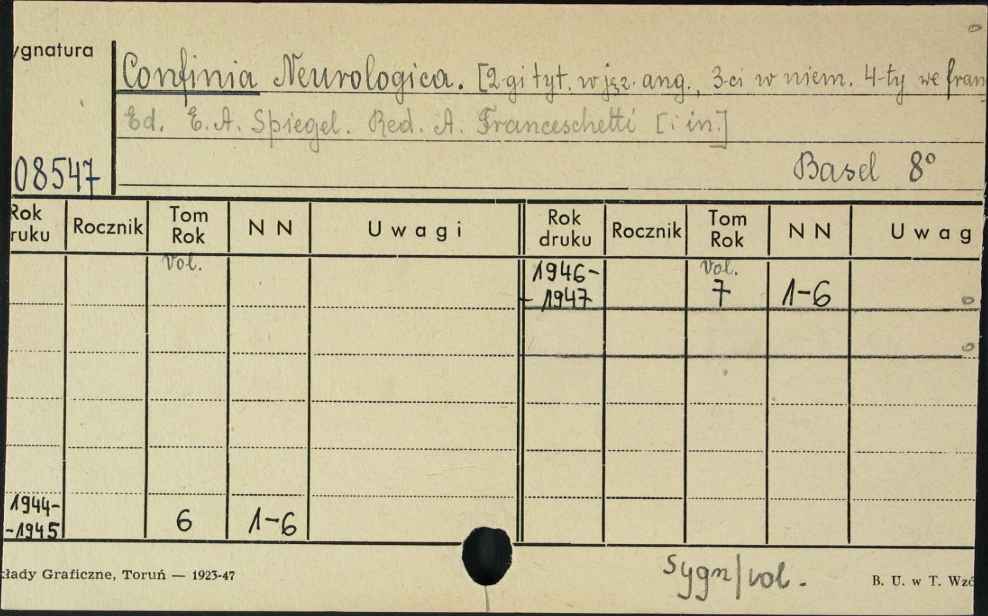 ygnatura
Confinia Neurologica. [2-gi tyt. w jęz. ang., 3-ci w niem. 4-ty we fran
Ed. E. A. Spiegel. Red. A. Franceschetti [i in.]
08547
Basel 8°
Rok ruku Rocznik Tom Rok N N Uwagi Rok druku Rocznik Tom Rok N N Uwag
Vol. 1946- Vol.
-1947 7 1-6
1944-
-1945 6 1-6
kłady Graficzne, Toruń — 1923-47
Sygn/vol.
B. U. w T. Wzó